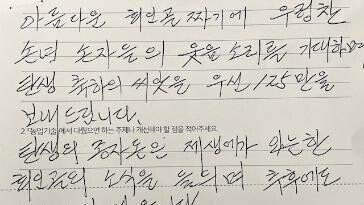 아름다운 회인골짜기에 우렁찬
손녀 손자들의 웃음소리를 기대하며
탄생 축하의 씨앗을 우선 125만을
보내드립니다.
2. "농업기술"에서 다뤘으면 하는 주제나 개선돼야 할 점을 적어주세요.
탄생의 종자돈은 재생에가 있는한
회인골의 소식을 들으며 추후에도